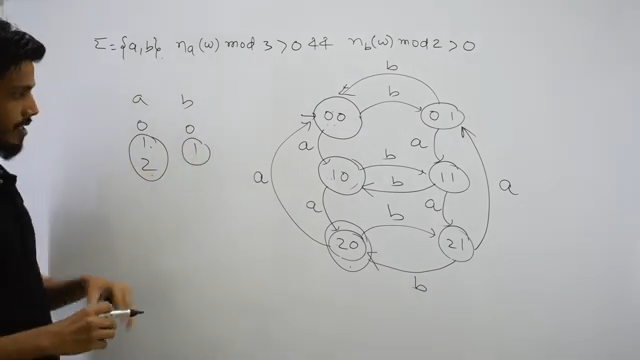 Σ={a,b}. na(w) mod 3 > 0 && nb(w) mod 2 > 0
a b
0 0
1 1
2
b
b
00 01
a a
b
10 11
b
a a
a a
b
20 21
b